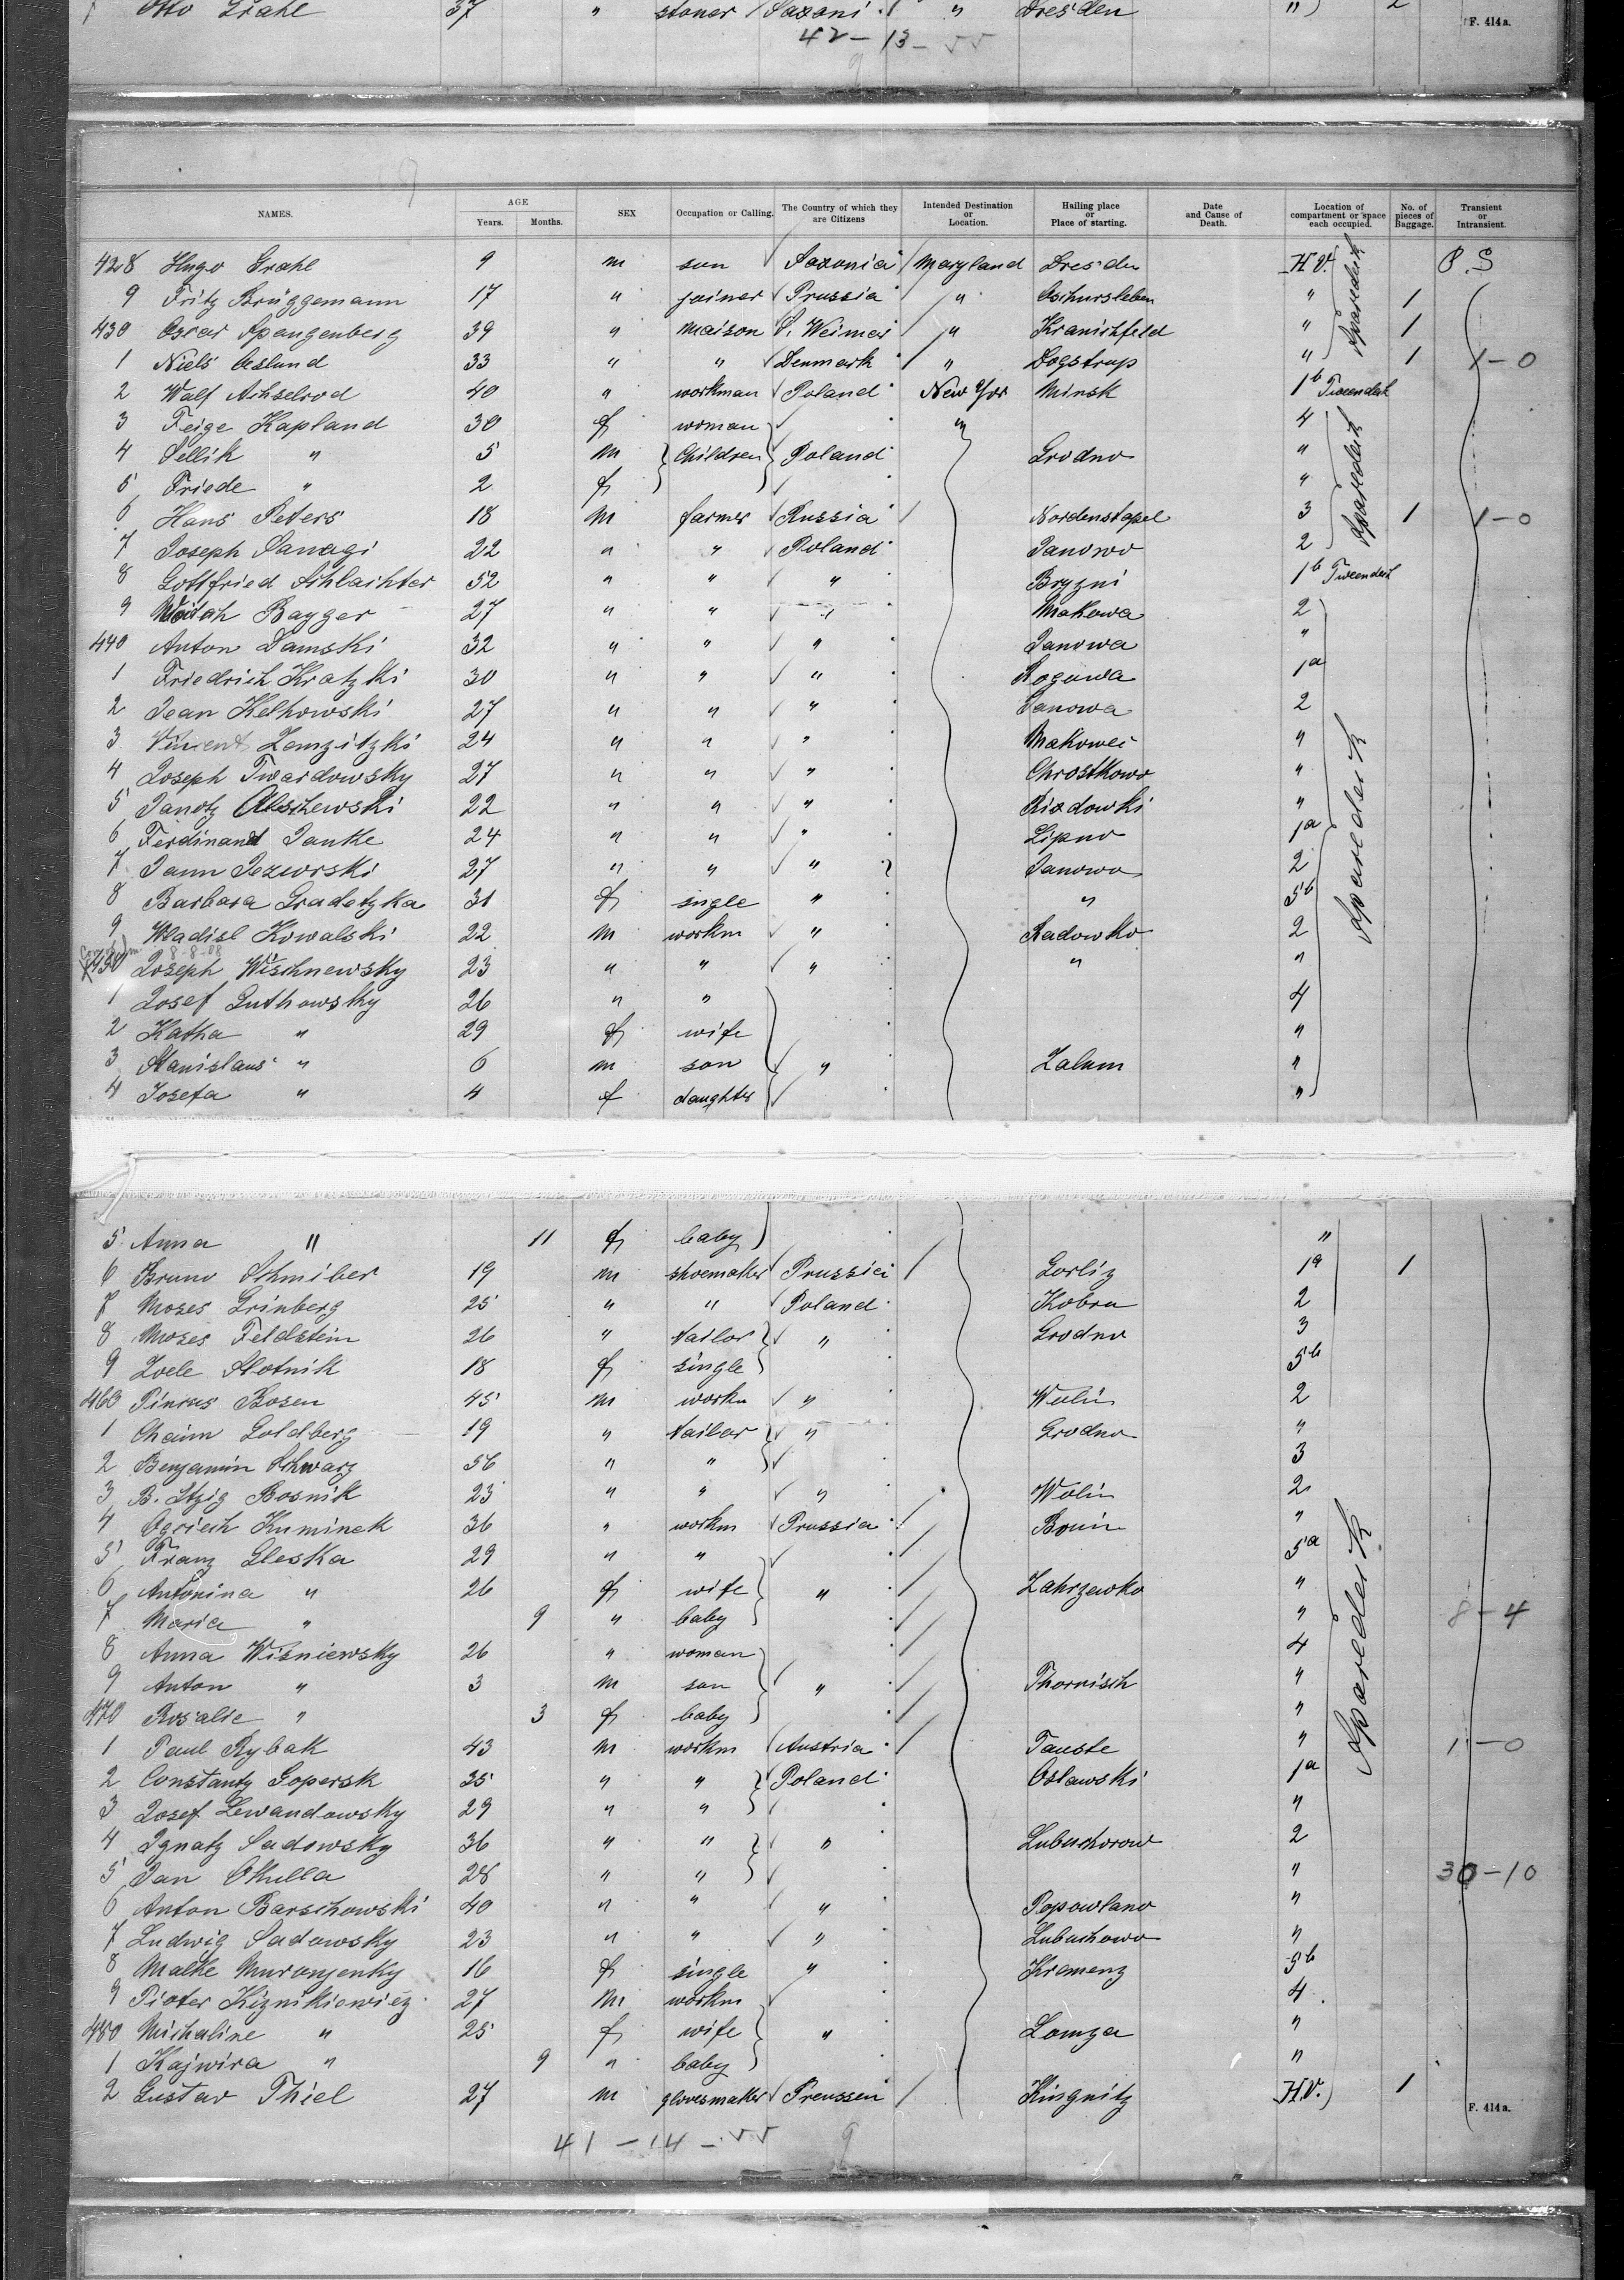 1 Otto Grahl 37 " stoner Saxoni " Dresden " 2
42-13-55
F. 414a.
NAMES. AGE Years. Months. SEX Occupation or Calling. The Country of which they are Citizens Intended Destination or Location. Hailing place or Place of starting. Date and Cause of Death. Location of compartment or space each occupied. No. of pieces of Baggage. Transient or Intransient.
428 Hugo Grahl 9 m son Saxonia Maryland Dresden H.V. P.S
9 Fritz Brüggemann 17 " joiner Prussia " Oschursleben " 1
430 Oscar Spangenberg 39 " maison S. Weimar " Kranichfeld " 1
1 Niels Oeslund 33 " " Denmark " Logstrup " 1 1-0
2 Walf Achselrod 40 " workman Poland New Yor Minsk 1b Tweendeck
3 Feige Kapland 30 f woman " 4
4 Sellik " 5 m Children Poland Grodno "
5 Friede " 2 f "
6 Hans Peters 18 m farmer Russia Nordenstapel 3 1 1-0
7 Joseph Sanagi 22 " " Poland Janowo 2
8 Gottfried Schlachter 52 " " " Bryzni 1b Tweendeck
9 Bayger 27 " " " Makowa 2
440 Anton Damski 32 " " " Janowa "
1 Friedrich Kratzki 30 " " " Rogowa 1a
2 Jean Kelhowski 27 " " " Janowa 2
3 Vincent Zamzitzki 24 " " " Makowei "
4 Joseph Twardowsky 27 " " " Chrostkowo "
5 Janotz 22 " " " Rixdowki "
6 Ferdinand Janke 24 " " " Lipno 1a
7 Jann Jezworski 27 " " " Janowo 2
8 Barbara Gradetzka 31 f single " " 5b
9 Wladisl Kowalski 22 m workm " Radowko 2
450 8-8-08 Joseph Wischnewsky 23 " " " " "
1 Josef Guthowsky 26 " " 4
2 Katha " 29 f wife "
3 Stanislaus " 6 m son " Zalum "
4 Josefa " 4 f daughter "
5 Anna " 11 f baby "
6 Bruno Schmiber 19 m shoemaker Prussia Gorliz 1a 1
7 Moses Grinberg 25 " " Poland Kobru 2
8 Moses Feldstein 26 " tailor " Grodno 3
9 Zoele Slotnik 18 f single 5b
460 Pincus Bosen 45 m workm " Wolin 2
1 Chaim Goldberg 19 " tailor " Grodno "
2 Benjamin Schwarz 56 " " 3
3 B. Itzig Bosnik 23 " " " Wolin 2
4 Kuminek 36 " workm Prussia Bnin "
5 Franz Gleska 29 " " 5a
6 Antonina " 26 f wife " Zahrzewko "
7 Maria " 9 " baby " 8-4
8 Anna Wisniewsky 26 " woman 4
9 Anton " 3 m son " Thornisch "
470 Rosalie " 3 f baby "
1 Paul Rybak 43 m workm Austria Tauste " 1-0
2 Constanty Gopersk 35 " " Poland Oslawski 1a
3 Josef Lewandowsky 29 " " "
4 Ignatz Sadowsky 36 " " " Lubuchorow 2
5 Jan Okulla 28 " " " 30-10
6 Anton Barschowski 40 " " " Popowlano "
7 Ludwig Sadowsky 23 " " " Lubuchowo "
8 Malke Muronjenky 16 f single " Kremenz 5b
9 Pioter Kiznikiewicz 27 m workm 4
480 Michaline " 25 f wife " Lomza "
1 Kajwira " 9 " baby "
2 Gustav Thiel 27 m glovesmaker Preussen Kingnitz H.V. 1
F. 414a.
41-14-55
9